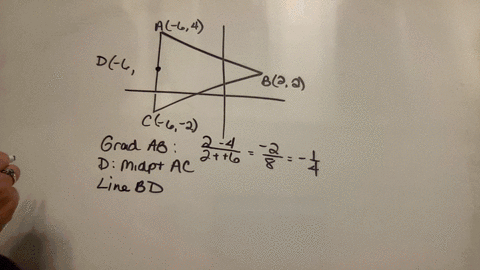 A(-6,4)
D(-6,
B(2,2)
C(-6,-2)
Grad AB: 2-4/2++6 = -2/8 = -1/4
D: midpt AC
Line BD